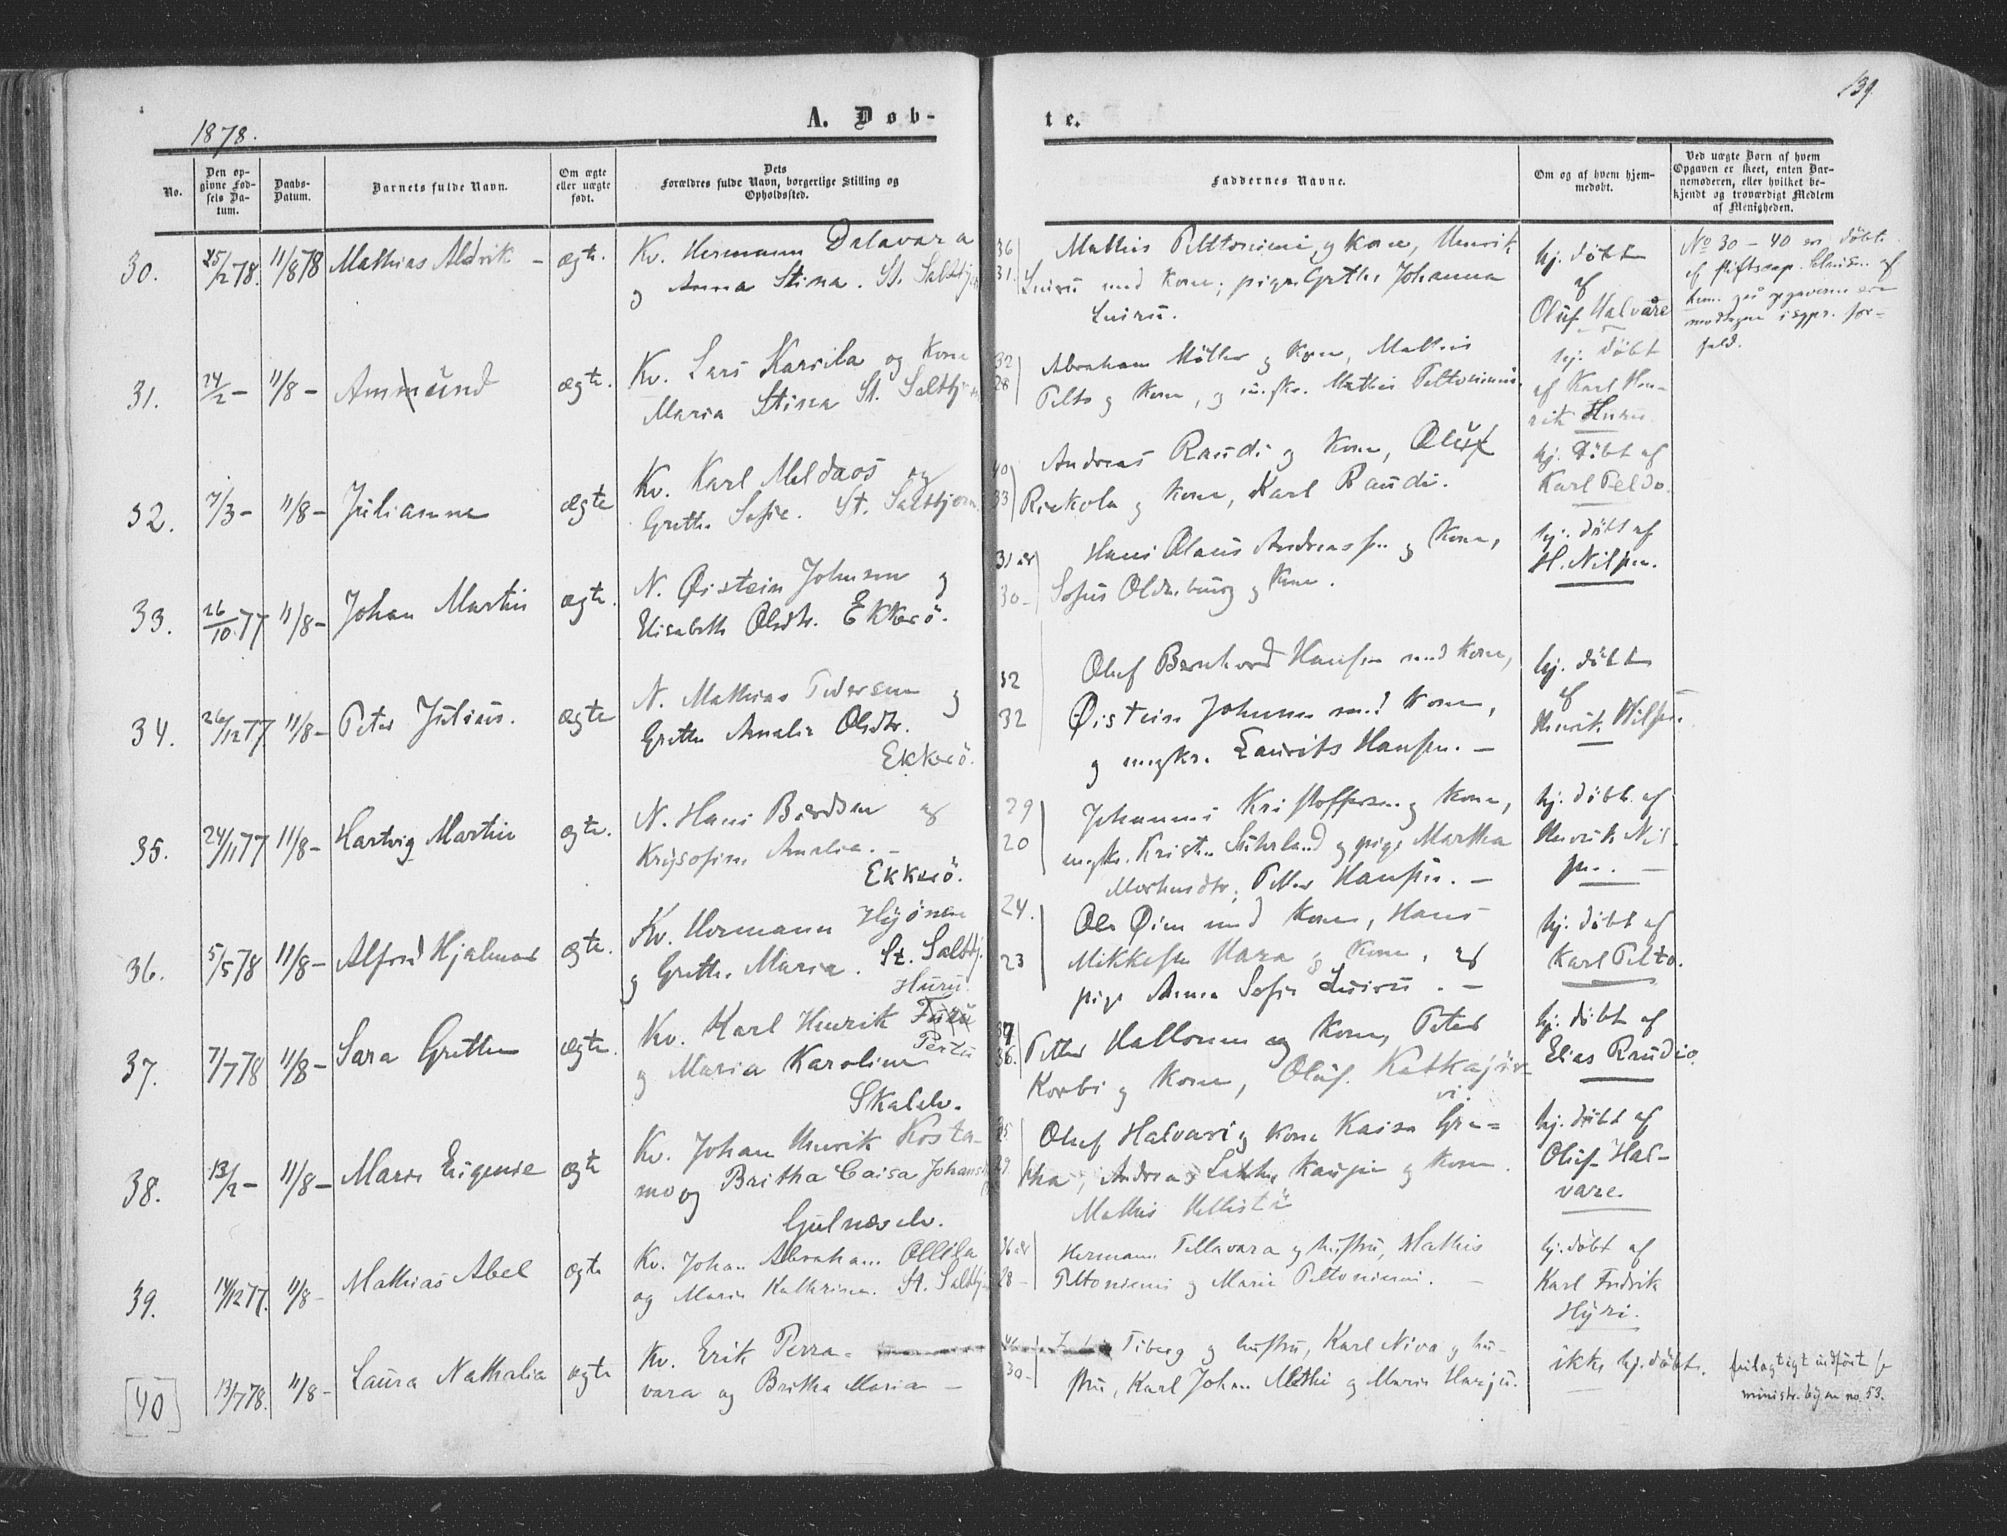 139.
1878.
A. Døb-
te.
No.
Den op-
givne Fød-
sels Da-
tum.
Daabs-
Datum.
Barnets fulde Navn.
Om ægte
eller uægte
født.
Dets
Forældres fulde Navn, borgerlige Stilling og
Opholdssted.
Faddernes Navne.
Om og af hvem hjem-
medøbt.
Ved uægte Børn af hvem
Opgaven er skeet, enten Bar-
nemoderen, eller hvilket be-
kjendt og troværdigt Medlem
af Menigheden.
30.
25/2 78.
11/8 78
Mathias Aldrik –
ægte.
Kv. Hermann Dalavara
og Anna Stina. St. Saltbj
36
31.
Mathis Peltoniemi og Kone, Henrik
Luiru med Kone, pige Grethe Johanna
Luiru.
hj. døbt
af
Oluf Halvare
No 30 – 40 er døbt
af
31.
24/2 –
11/8 –
Ammund
ægte.
Kv. Lars Karsila og Kone
Maria Stina St. Saltbj
32
28
Abraham Møller og Kone, Mathis
Pelto og Kone, og ungkr. Mathis Peltoniemi.
hj. døbt
af Karl Hen-
rik Huru.
32.
7/3 –
11/8 –
Julianne
ægte
Kv. Karl Meldaos og
Grethe Sofie. St. Saltbjern
40
33
Andreas Raudi og Kone, Oluf
Riekola og Kone, Karl Raudi.
hj. døbt af
Karl Peldo.
33.
26/10 77
11/8 –
Johan Martin
ægte.
N. Øistein Johnsen og
Elisabeth Olsdtr. Ekkerö.
31 år
30 –
Hans Olaus Andreassen og Kone,
Sofus Oldenburg og Kone.
hj. døbt af
H. Nilsen.
34.
26/12 77
11/8 –
Peter Julius.
ægte
N. Mathias Pedersen og
Grethe Amalie Olsdtr.
Ekkerö.
32
32
Oluf Bernhard Hansen med Kone,
Øistein Johnsen med Kone,
og ungkr. Laurits Hansen. –
hj. døbt
af
Henrik Nilsen.
35.
24/11 77
11/8 –
Hartvig Martin
ægte.
N. Hans Bærdsen og
Krysofine Amalia. –
Ekkerö.
29
20
Johannes Kristoffersen og Kone,
ungkr. Kristen Suhrland og pige Martha
Petter Hansen. –
hj. døbt af
Henrik Nil-
sen. –
36.
5/5 78
11/8 –
Alfred Hjalmar
ægte.
Kv. Hermann Hyönen
og Grethe Maria. St. Saltbj.
24.
23
Ole Øien med Kone, Hans
Mikkelsen Hara og Kone, og
pige Anna Sofie Luiru. –
hj. døbt af
Karl Pelto.
37.
7/7 78
11/8 –
Sara Grethe
ægte.
Huru.
Kv. Karl Henrik Furu
Pertu
og Maria Karoline
Skalelv.
39
36.
Petter Hallonen og Kone, Peter
Korbi og Kone, Oluf Katkajär-
vi.
hj. døbt af
Elias Raudio.
38.
13/2 –
11/8 –
Marie Eugenie
ægte
Kv. Johan Henrik Kosta-
mo og Britha Caisa Johans
Gulnæselv.
Oluf Halvari og Kone Kaisa Gre-
tha, Andreas Kaupin og Kone.
Mathis
hj. døbt af
Oluf Hal-
vare.
39.
14/12 77.
11/8 –
Mathias Abel
ægte
Kv. Johan Abraham Ollila
og Marie Kathrine. St. Saltbj
36 år
28 –
Hermann Pellavara og hustru, Mathis
Peltoniemi og Marie Peltoniemi. –
hj. døbt af
Karl Fredrik
Hyri.
[40]
13/7 78.
11/8 –
Laura Nathalia
ægte
Kv. Erik Perra-
vara og Britha Maria –
30 –
Tiberg og hustru, Karl Niva og hu-
stru, Karl Johan Mathi og Marie Harju.
ikke hj. døbt.
feilagtigt indført fr
ministr.bogen no. 53.